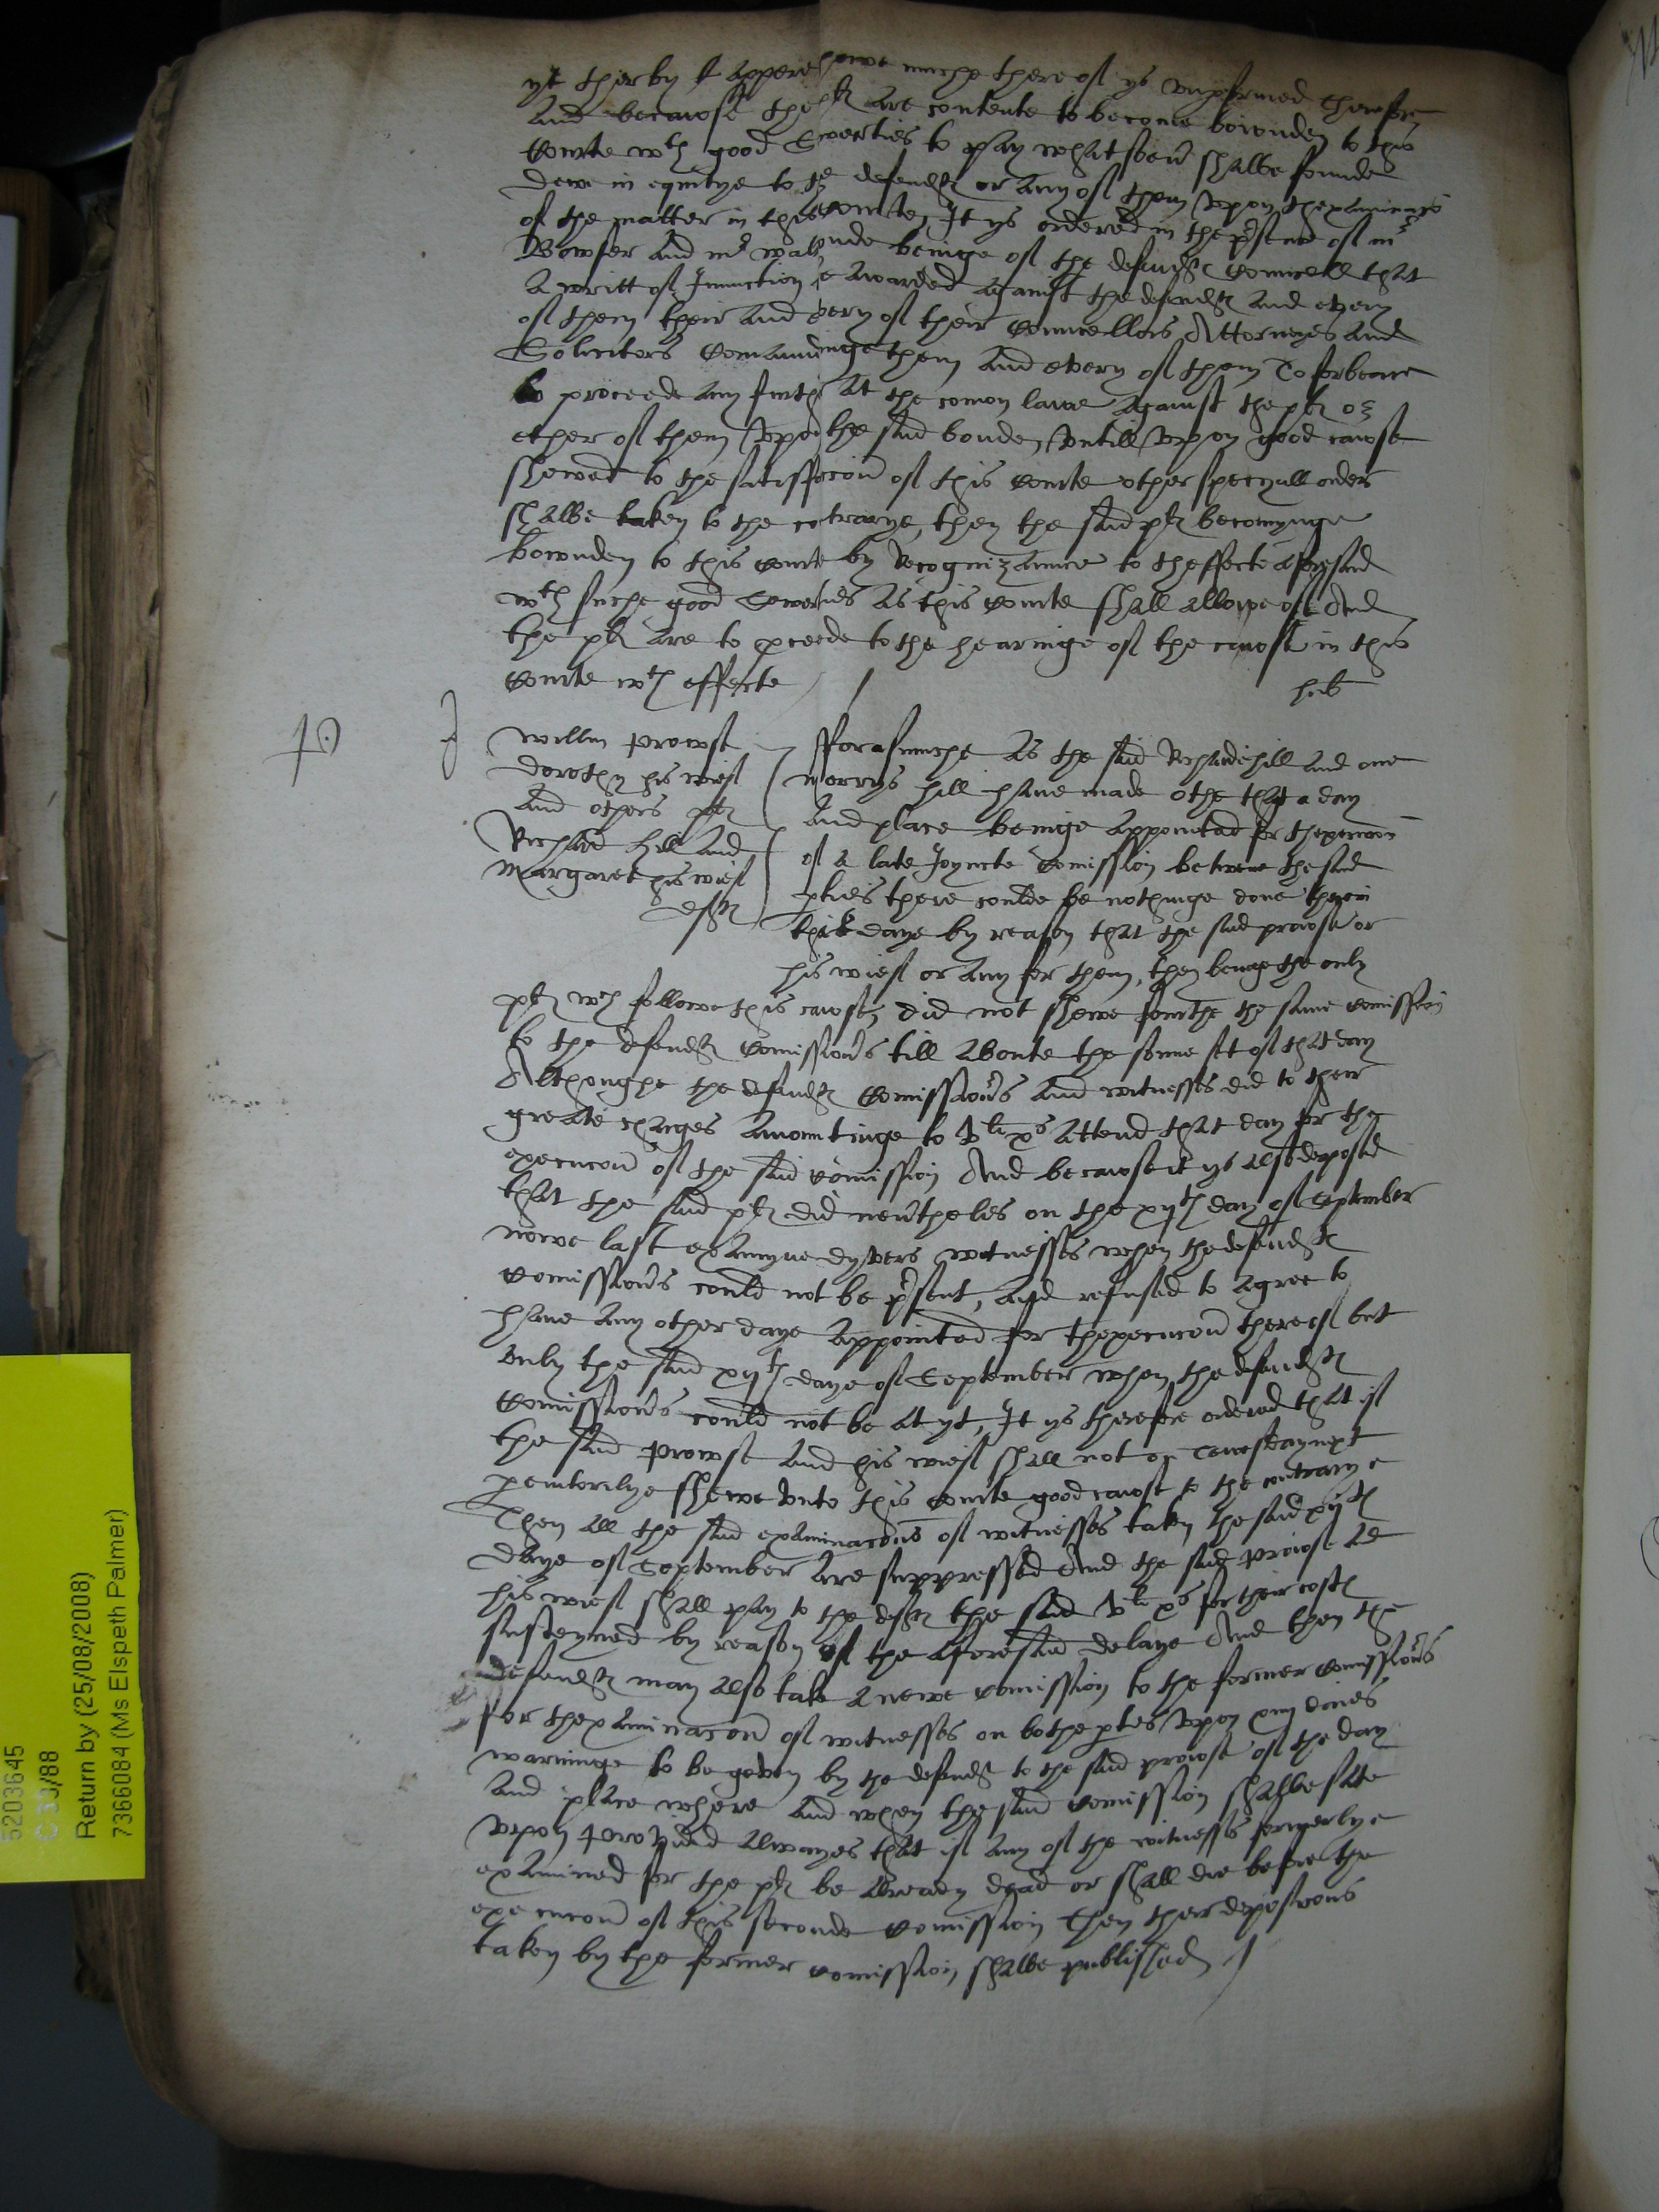 yt therby appere howe muche there of ys unpformed Therefore
And becawse the pltes are contente to become bownden to this
Courte wth good Suerties to pay whatsoeur shalbe founde
dew in equitye to the defendtes or any of them Upon thexaminacon
of the matter in this Courte, It ys ordered in the psence of mr
Bowser and mr beinge of the defendtes Councell that
A writt of Iniunction be awarded against the defendtes and every
of them their and every of their Councellors Attorneyes and
Solicitors Comaundinge them and every of them To forbeare
to proceede any further at the comon lawe against the pltes or
ether of them Upon the said bonde, Untill Uppon good cawse
shewed to the satisffaccon of this Courte other specyall order
shalbe taken to the cotrarye, then the said pltes becomynge
bownden to this Courte by Recognizaunce to theffecte aforesaid
wth suche good Sewerties as this Courte shall allowe of And
the pltes are to pceede to the hearinge of the cawse in this
Courte wth effecte /
Willm Prowst
Dorothy his wief
and others pltes
Richard Hill and
Margaret his wief
deftes
fforasmuche as the said Richarde Hill and one
Morrys Hill have made othe that a day
and place beinge appointed for thexecucon
of a late Joyncte Comission betwene the said
pties there coulde be nothinge done therein
that daye by reason that the said prowse or
his wief or any for them, then beinge the only
pltes wch followe this cawse, did not shewe fourthe the same Comission
to the defendtes Comissiours till aboute the sonne sett of that day
Althoughe the defendtes Comissiours and witnesses did to their
greate charges amountinge to vli xs attend that day for the
execucon of the said Comission And becawse it ys also deposed
that the said pltes did neurtheles on the xijth day of September
nowe last examyne dyvers witnesses when the defendtes
Comissiours could not be psent, and refused to agree to
have any other daye appointed for thexecucon thereof but
only the said xijth daye of September when the defendtes
Comissiours could not be at yt, It ys therefore ordered that if
the said Prowse and his wief shall not on Tewesday next
pemtorilye shewe Unto this Courte good cawse to the contrarye
Then all the said examinacons of witnesses taken the said xijth
daye of September are suppressed And the said Prowse and
his wief shall pay to the deftes the said vli xs for their costes
susteyned by reason of the aforesaid delaye And then the
defendtes may also take a newe Comission to the former Comissiours
for thexaminacon of witnesses on bothe ptes Upon xiiij daies
warninge to be geven by the defendtes to the said prowse of the day
and place where and when the said Comission shalbe satte
Upon Provided alwayes that if any of the witnesses formerlye
examined for the pltes be already dead or shall die before the
execucon of this seconde Comission Then their deposicons
taken by the former Comission shalbe published /
5203645
C 33/88
Return by (25/08/2008)
7366084 (Ms Elspeth Palmer)